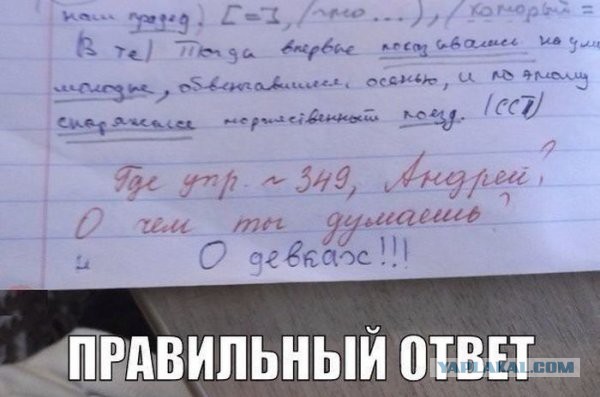 наш прадед, [=], (что ...), (который =
(В те) Тогда впервые показывались на ули
молодые, обвенчавшиеся осенью, и поэтому
снаряжался торжественный поезд. (ССП)
Где упр. ~ 349, Андрей?
О чем ты думаешь?
О девках!!!
ПРАВИЛЬНЫЙ ОТВЕТ
YAPLAKAL.COM